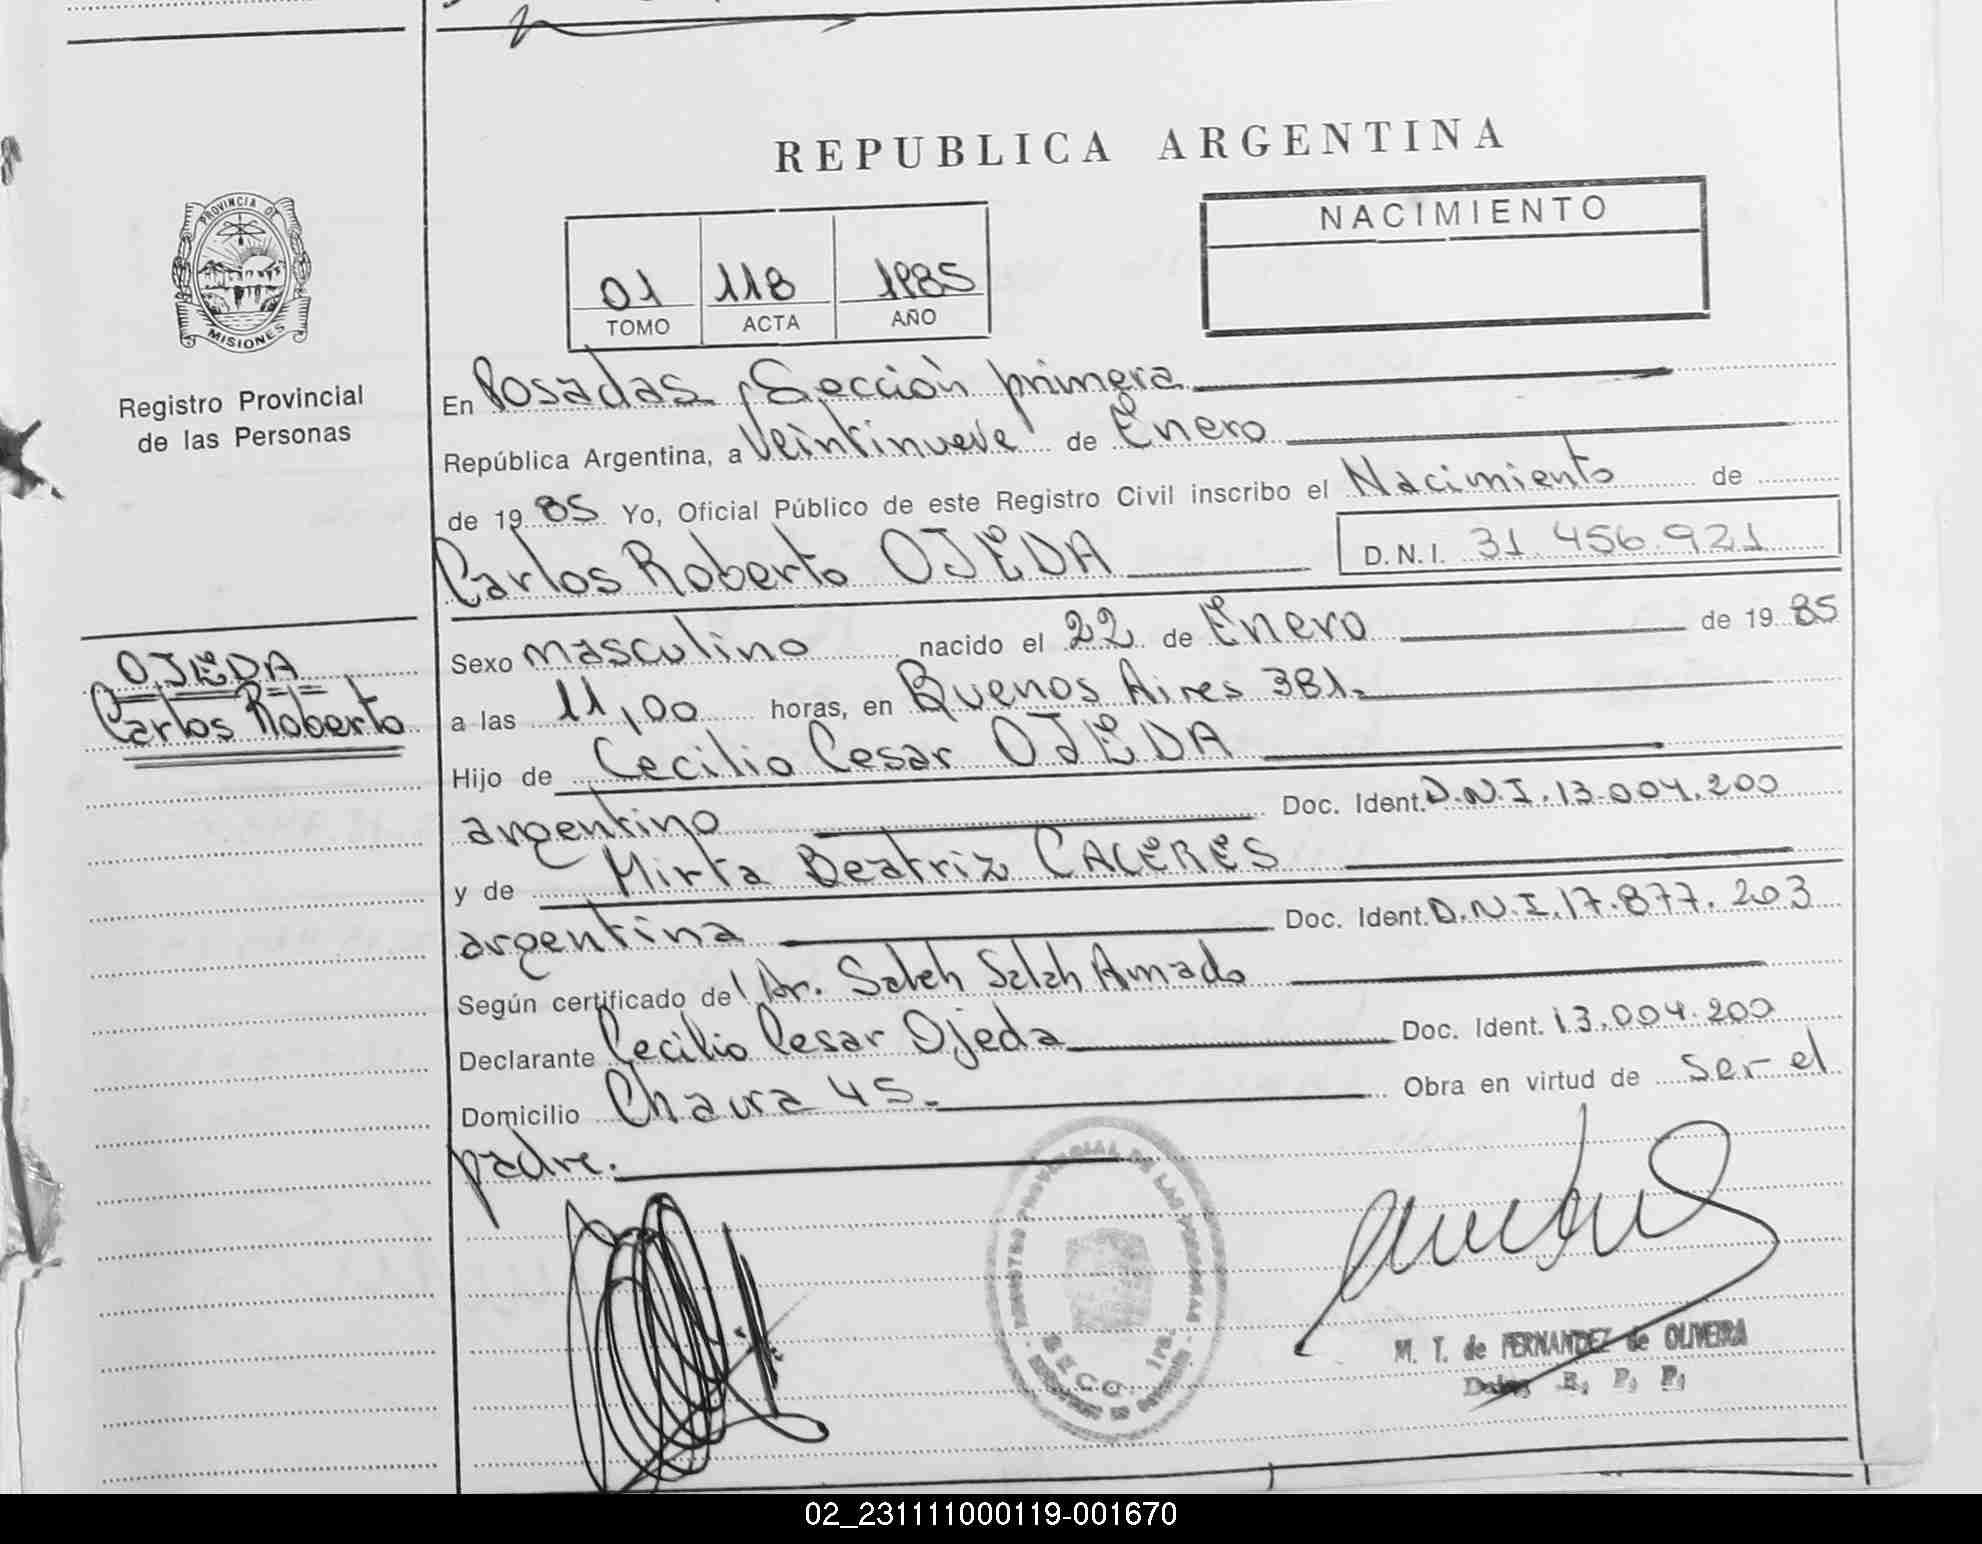 REPUBLICA ARGENTINA
PROVINCIA DE
MISIONES
Registro Provincial
de las Personas
01 118 1985
TOMO ACTA AÑO
NACIMIENTO
En Posadas, Sección primera
República Argentina, a Veintinueve de Enero
de 1985 Yo, Oficial Público de este Registro Civil inscribo el Nacimiento de
Carlos Roberto OJEDA D.N.I. 31.456.921
OJEDA
Carlos Roberto
Sexo masculino nacido el 22 de Enero de 1985
a las 11,00 horas, en Buenos Aires 381.
Hijo de Cecilio Cesar OJEDA
argentino Doc. Ident. D.N.I. 13.004.200
y de Mirta Beatriz CACERES
argentina Doc. Ident. D.N.I. 17.877.203
Según certificado del Dr. Saleh Salah Amado
Declarante Cecilio Cesar Ojeda Doc. Ident. 13.004.200
Domicilio Chaura 45. Obra en virtud de ser el
padre.
PROVINCIAL DE LAS PERSONAS
SECC. 1ra.
M. T. de FERNANDEZ de OLIVEIRA
02_231111000119-001670